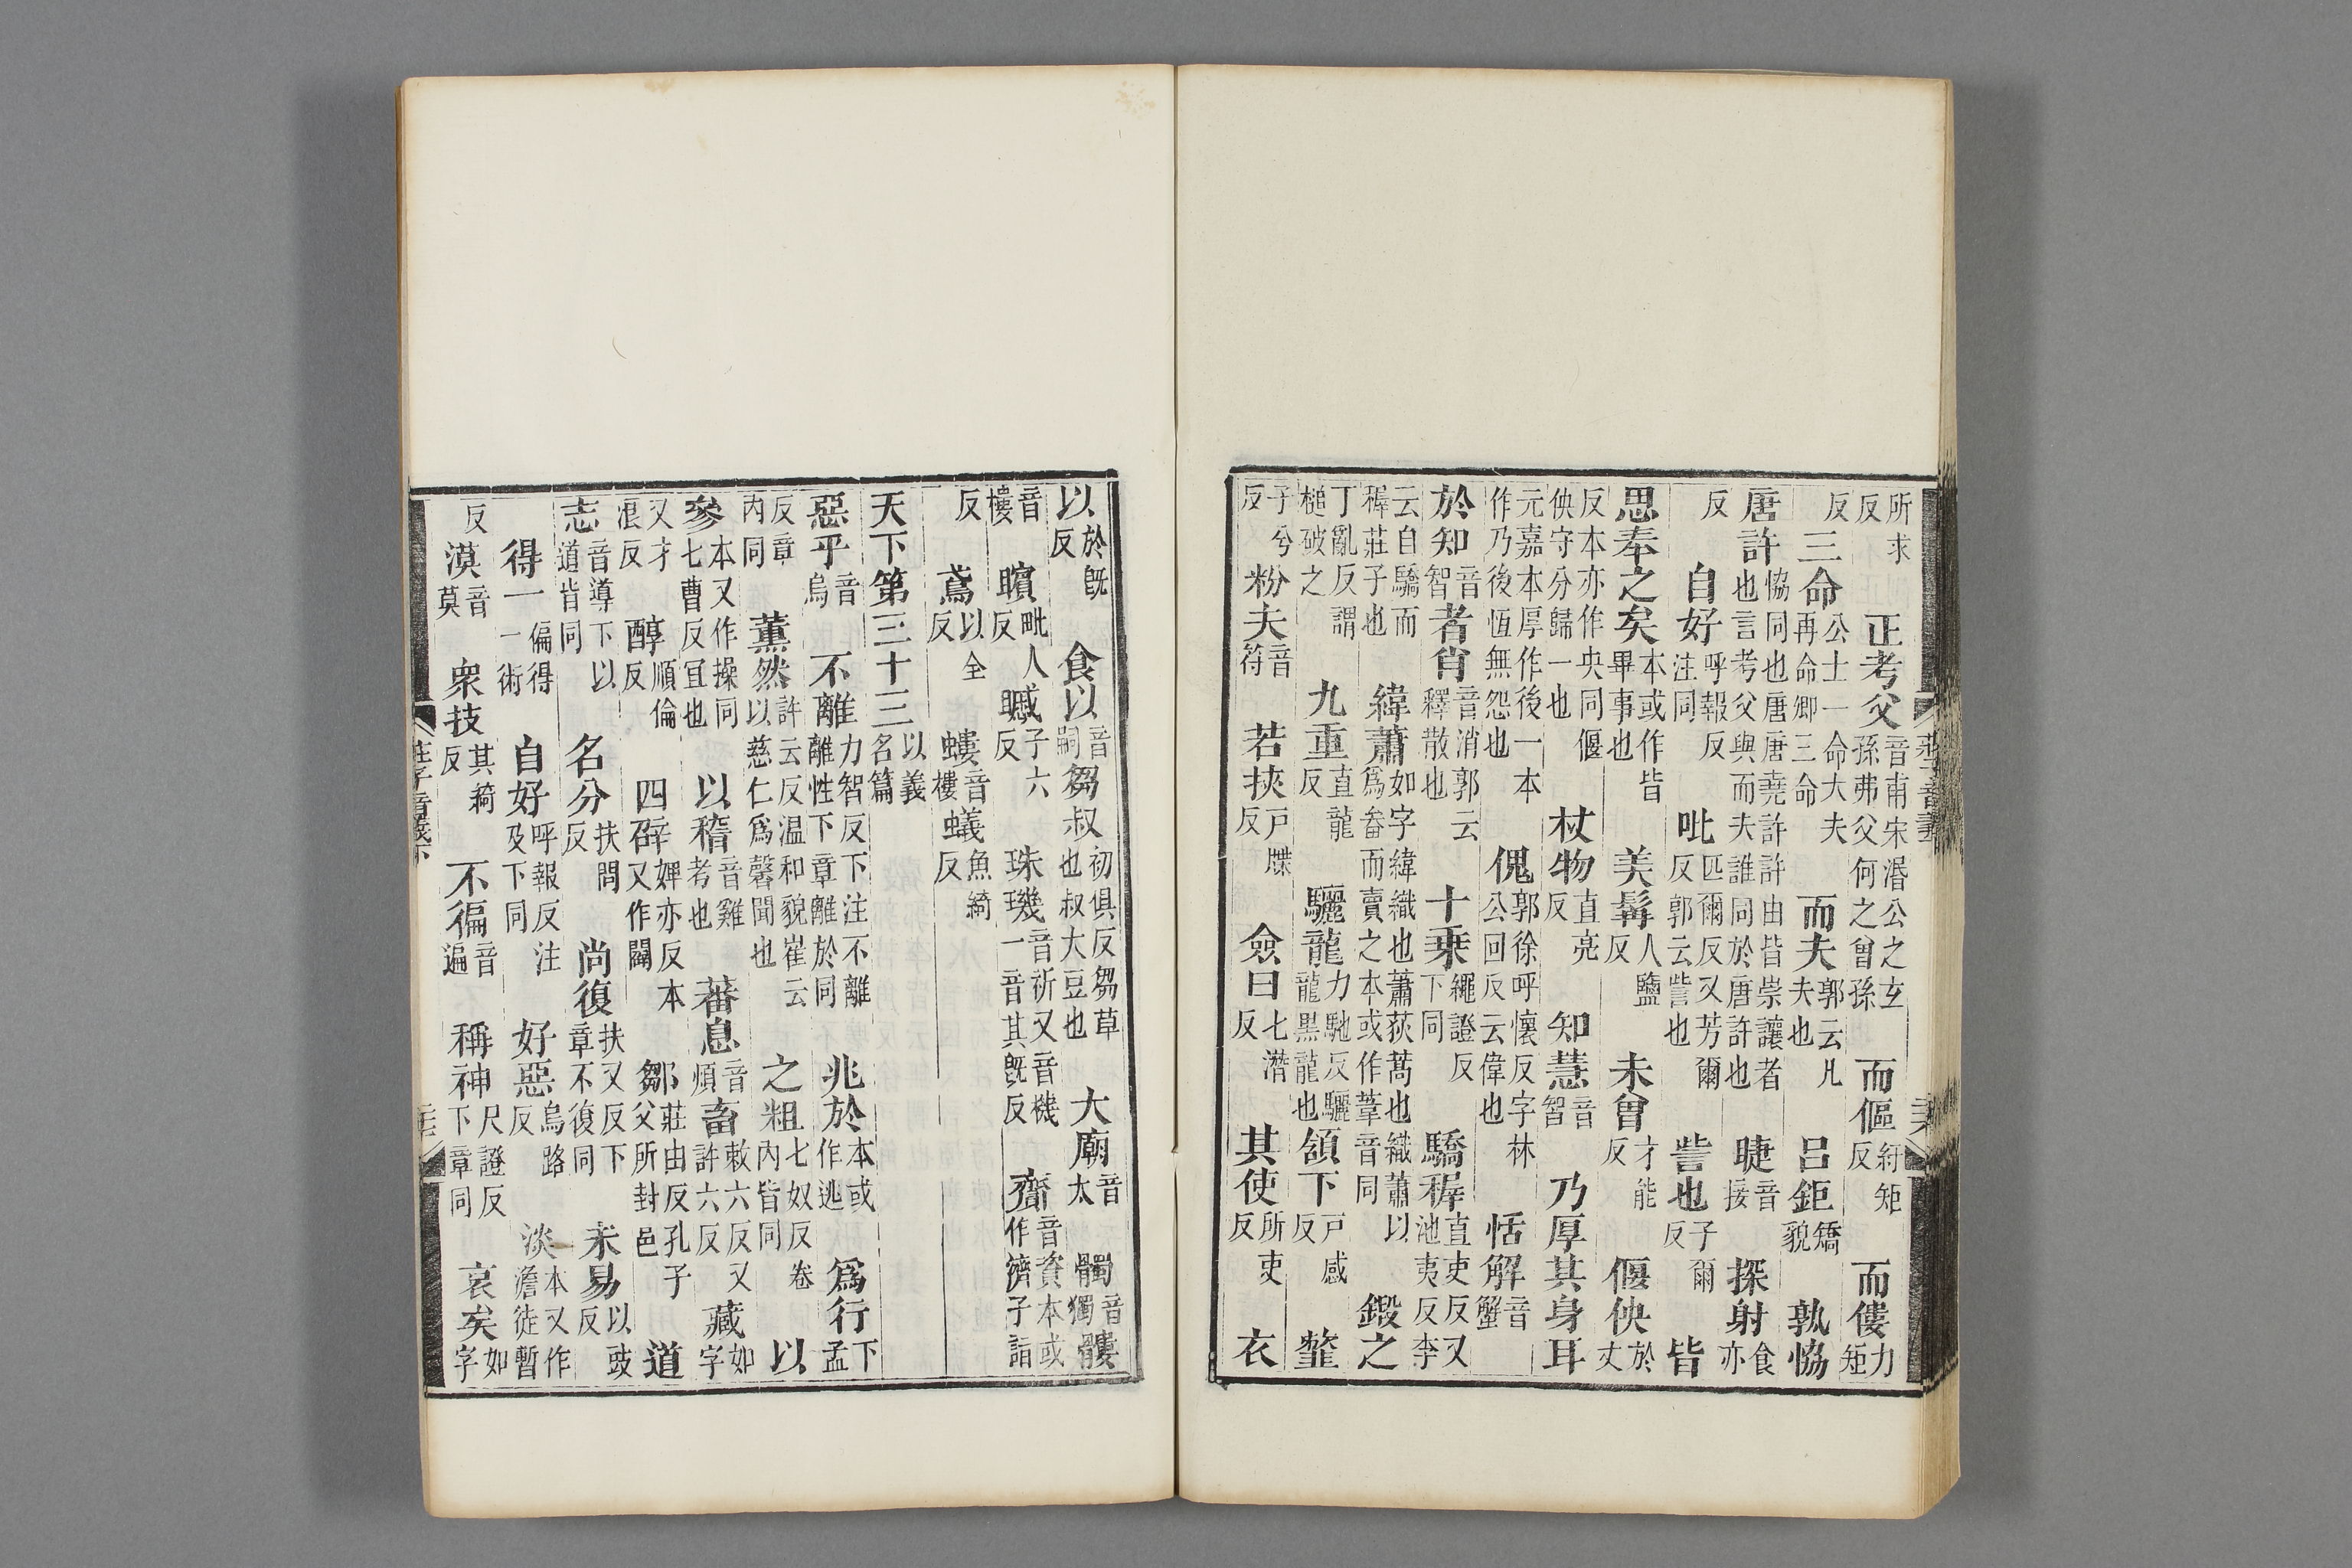 所求反　正考父音甫宋湣公之玄孫弗父何之曾孫　而傴紆矩反　而僂力矩
反　三命公士一命大夫再命卿三命　而夫郭云凡夫也　呂鉅矯貌　孰恊
唐許恊同也唐唐堯許許由皆崇讓者也言考父與而夫誰同於唐許也　睫音接　探射食亦
反　自好呼報反注同　吡匹爾反又芳爾反郭云訾也　訾也子爾反　皆
思奉之矣本或作皆畢事也　美髯人鹽反　未曾才能反　偃佒於丈
反本亦作央同偃佒守分歸一也　杖物直亮反　知慧音智　乃厚其身耳
元嘉本厚作後一本作乃後恆無怨也　傀郭徐呼懷反字林公回反云偉也　恬解音蟹
於知音智　者肖音消郭云釋散也　十乗繩證反下同　驕穉直吏反又池夷反李
云自驕而穉莊子也　緯蕭如字緯織也蕭荻蒿也織蕭以爲畚而賣之本或作葦音同　鍛之
丁亂反謂槌破之　九重直龍反　驪龍力馳反驪龍黑龍也　頷下戸感反　韲
子兮反　粉夫音符　若挾戸牒反　僉曰七潛反　其使所吏反　衣
以於旣反　食以音嗣　芻叔初俱反芻草也叔大豆也　大廟音太　髑音獨　髏
音樓　矉毗人反　顣子六反　珠璣音祈又音機一音其旣反　齎音資本或作濟子詣
反　鳶以全反　螻音樓　蟻魚綺反
天下第三十三以義名篇
惡乎音烏　不離力智反下注不離離性下章離於同　兆於本或作逃　爲行下孟
反章内同　薰然許云反温和貌崔云以慈仁爲馨聞也　之粗七奴反卷内皆同　以
參本又作操同七曹反宜也　以稽音雞考也　蕃息音煩　畜敕六反又許六反　藏如字
又才浪反　醇順倫反　四辟婢亦反本又作闢　鄒莊由反孔子父所封邑　道
志音導下以道皆同　名分扶問反　尚復扶又反下章不復同　未易以豉反
得一偏得一術　自好呼報反注及下同　好惡烏路反　淡本又作澹徒暫
反　漠音莫　衆技其綺反　不徧音遍　稱神尺證反下章同　哀矣如字
莊子音義下